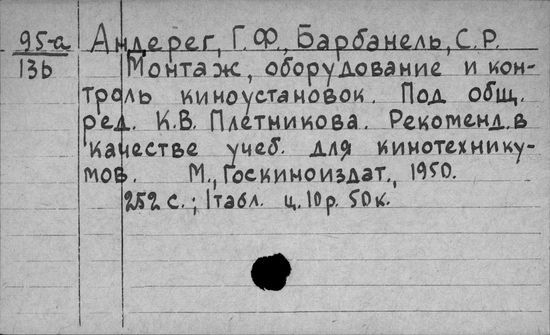 95-а Андерег, Г.Ф., Барбанель, С.Р.
136 Монтаж, оборудование и кон-
троль киноустановок. Под общ.
ред. К.В. Плетникова. Рекоменд. в
качестве учеб. для кинотехнику-
мов. М., Госкиноиздат., 1950.
252 с.; 1 табл. ц. 10 р. 50 к.